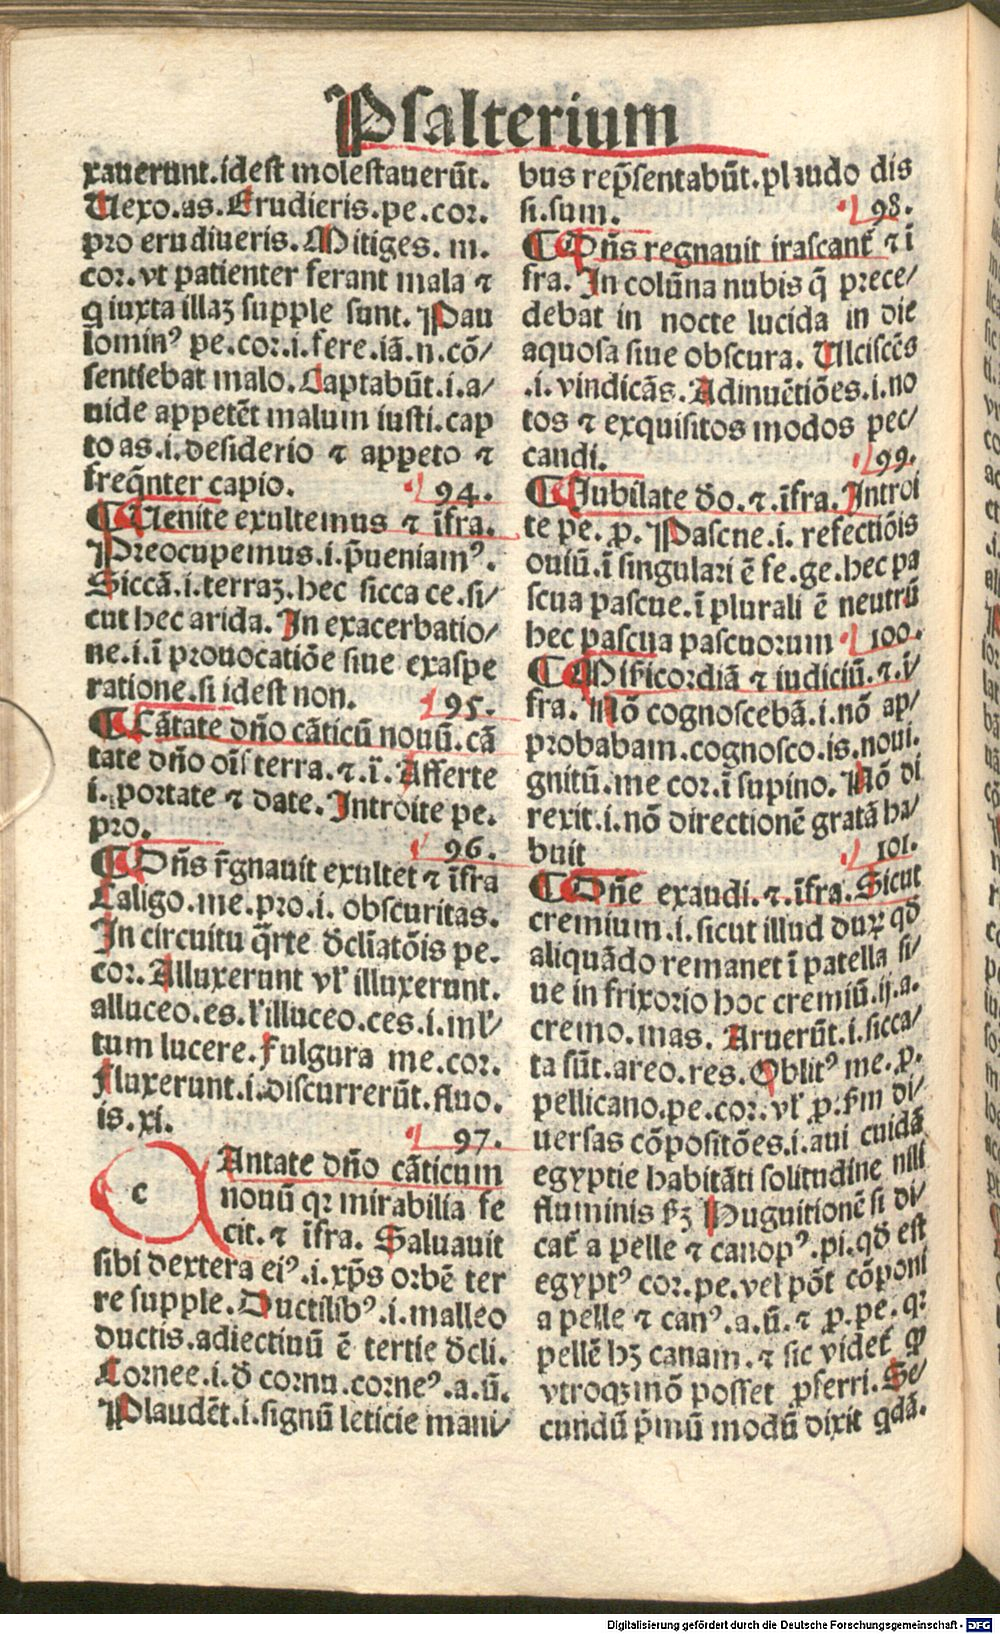 Psalterium
xauerunt.idest molestauerūt.
Uexo.as.Erudieris.pe.cor.
pro erudiueris.Mitiges.m.
cor.vt patienter ferant mala ⁊
q̄ iuxta illaꝫ supple sunt.Pau
lomin᾿ pe.cor.i.fere.iā.n.cō/
sentiebat malo.Captabūt.i.a/
uide appetēt malum iusti.cap
to as.i.desiderio ⁊ appeto ⁊
freq̄nter capio. 94.
¶Uenite exultemus ⁊ īfra.
Preocupemus.i.p̄ueniam᾿.
Siccā.i.terraꝫ.hec sicca ce.si/
cut hec arida.In exacerbatio/
ne.i.ī prouocatiōe siue exaspe
ratione.si idest non. 95.
¶Cātate dn̄o cāticū nouū.cā
tate dn̄o oīs terra.⁊.ī.Afferte
i.portate ⁊ date.Introite pe.
pro. 96.
¶Dn̄s r̄gnauit exultet ⁊ īfra
Caligo.me.pro.i.obscuritas.
In circuitu q̄rte dcl̄iatōis pe.
cor.Alluxerunt vl̓ illuxerunt.
alluceo.es.l̓ illuceo.ces.i.ml̓/
tum lucere.Fulgura me.cor.
Fluxerunt.i.discurrerūt.fluo.
is.xi. 97.
c Antate dn̄o cāticum
nouū qꝛ mirabilia fe
cit.⁊ īfra.Saluauit
sibi dextera ei᾿.i.xp̄s orbē ter
re supple.Ductilib᾿.i.malleo
ductis.adiectiuū ē tertie dc̄li.
Cornee.i.d̄ cornu.corne᾿.a.ū.
Plaudēt.i.signū leticie mani/
bus rep̄sentabūt.plaudo dis
si.sum. 98.
¶Dn̄s regnauit irascant᷑ ⁊ ī
fra.In colūna nubis q̄ prece/
debat in nocte lucida in die
aquosa siue obscura.Ulciscēs
.i.vindicās.Adinuētiōes.i.no
tos ⁊ exquisitos modos pec/
candi. 99.
¶Jubilate d̄o.⁊.īfra.Introi
te pe.ꝓ.Pascue.i.refectiōis
ouiū.ī singulari ē fe.ge.hec pa
scua pascue.ī plurali ē neutrū
hec pascua pascuorum 100.
¶Mis̄icordiā ⁊ iudiciū.⁊.ī
fra.Nō cognoscebā.i.nō ap/
probabam.cognosco.is.noui.
gnitū.me cor.ī supino.Nō di
rexit.i.nō directionē gratā ha/
buit 101.
¶Dn̄e exaudi.⁊.īfra.Sicut
cremium.i.sicut illud duꝝ qd̄
aliquādo remanet ī patella si/
ue in frixorio hoc cremiū.ij.a.
cremo.mas.Aruerūt.i.sicca/
ta sūt.areo.res.Oblit᾿ me.ꝓ.
pellicano.pe.cor.vl̓ ꝓ.s̄m di/
uersas cōpositōes.i.aui cuidā
egyptie habitāti solitudine nili
fluminis sꝫ Huguitionē si di/
cat᷑ a pelle ⁊ canop᾿.pi.qd̄ est
egypt᾿ cor.pe.vel pōt cōponi
a pelle ⁊ can᾿.a.ū.⁊ ꝓ.pe.qꝛ
pellē hꝫ canam.⁊ sic videt᷑ ꝙ
vtroqꝫ mō posset ꝓferri.Se/
cundū p̄mū modū dixit qdā.
Digitalisierung gefördert durch die Deutsche Forschungsgemeinschaft - DFG